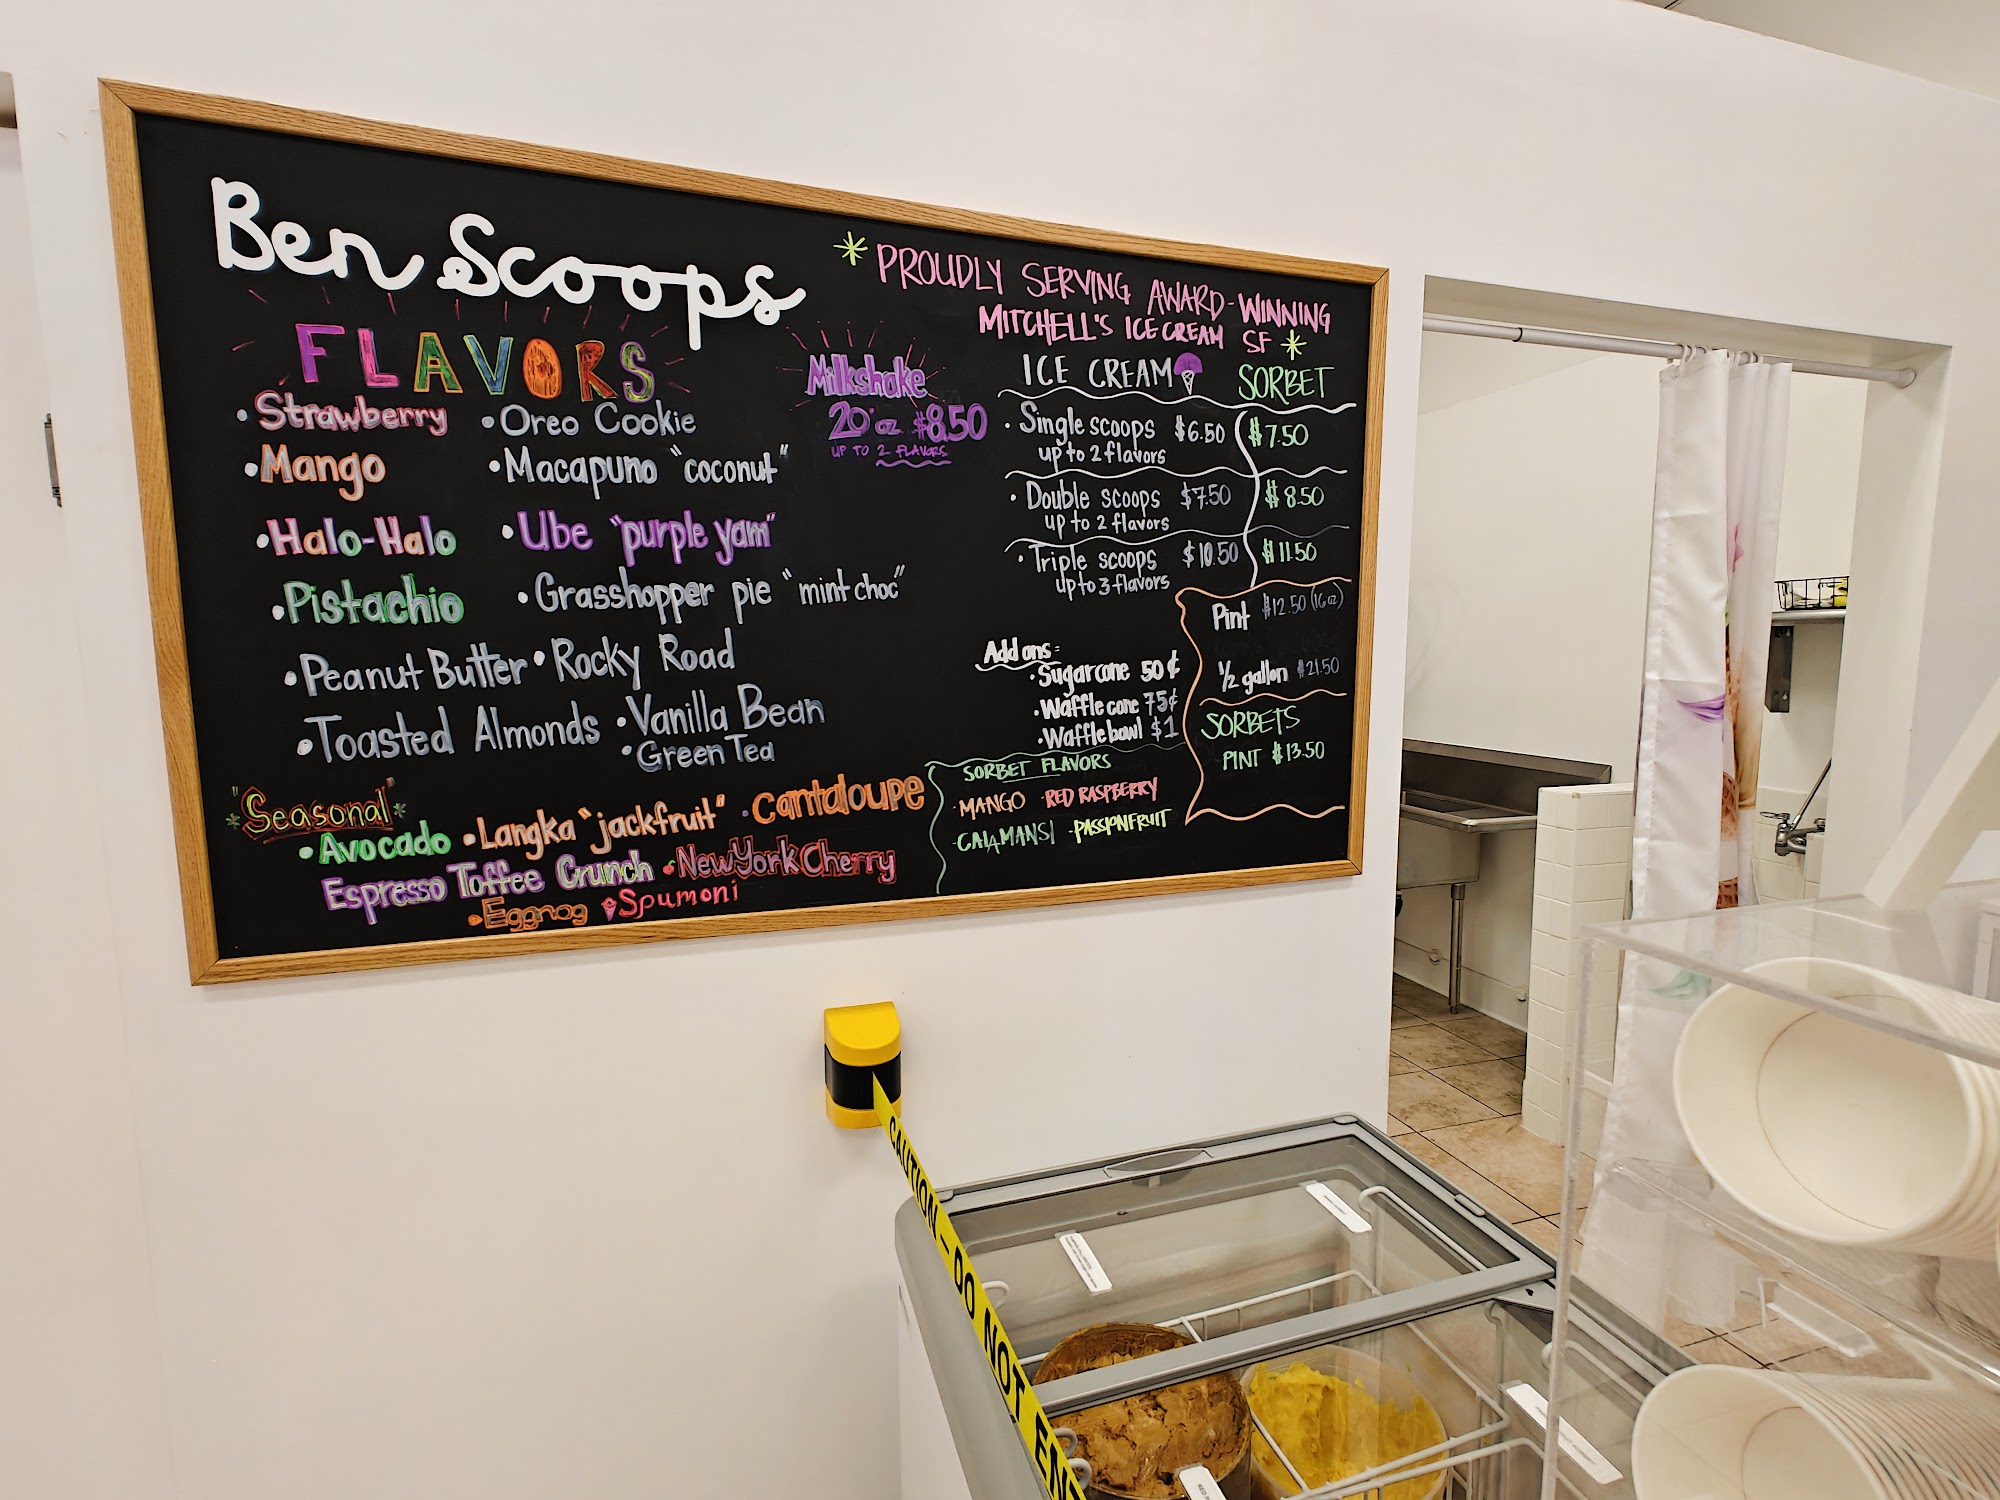 Ben Scoops
FLAVORS
• Strawberry
• Oreo Cookie
• Mango
• Macapuno "coconut"
• Halo-Halo
• Ube "purple yam"
• Pistachio
• Grasshopper pie "mint choc"
• Peanut Butter
• Rocky Road
• Toasted Almonds
• Vanilla Bean
• Green Tea
* "Seasonal" *
• Avocado
• Langka "jackfruit"
• Cantaloupe
Espresso Toffee Crunch
• New York Cherry
• Eggnog
Spumoni
Milkshake
20 oz $8.50
UP TO 2 FLAVORS
* PROUDLY SERVING AWARD-WINNING
MITCHELL'S ICE CREAM SF *
ICE CREAM SORBET
• Single scoops $6.50 $7.50
up to 2 flavors
• Double scoops $7.50 $8.50
up to 2 flavors
• Triple scoops $10.50 $11.50
up to 3 flavors
Pint $12.50 (16 oz)
1/2 gallon $21.50
SORBETS
PINT $13.50
Add ons:
• Sugar cone 50¢
• Waffle cone 75¢
• Waffle bowl $1
SORBET FLAVORS
• MANGO • RED RASPBERRY
• CALAMANSI • PASSIONFRUIT
CAUTION - DO NOT EN